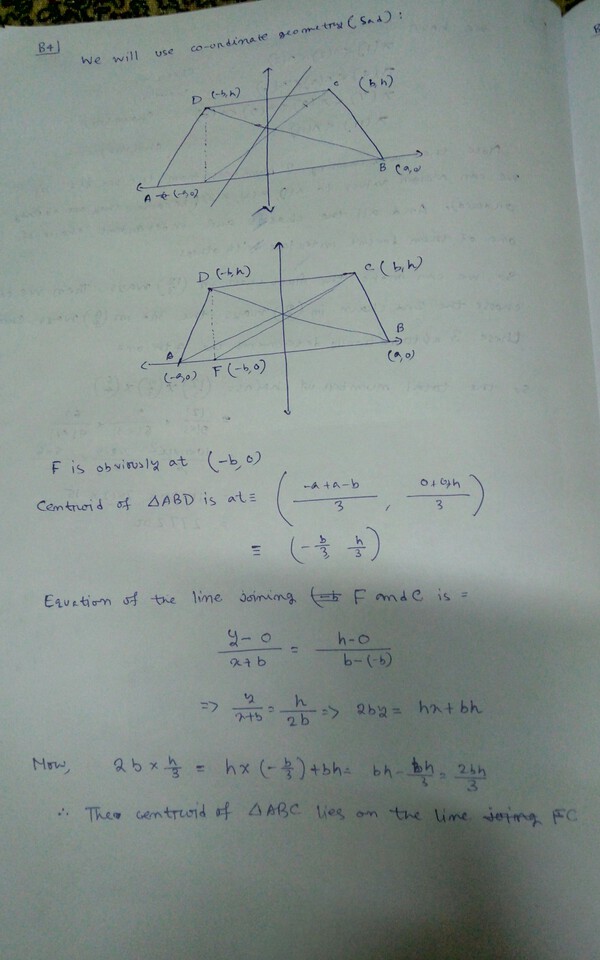 B4)
We will use co-ordinate geometry (Sad) :
D (-b,h)
C (b,h)
A (-a,0)
B (a,0)
D (-b,h)
C (b,h)
A
(-a,0)
F (-b,0)
B
(a,0)
F is obviously at (-b,0)
Centroid of △ABD is at ≡ ( -a+a-b / 3 , 0+0+h / 3 )
≡ ( -b/3 , h/3 )
Equation of the line joining F and C is =
y-0 / x+b = h-0 / b-(-b)
=> y / x+b = h / 2b => 2by = hx+bh
Now, 2b × h/3 = h×(-b/3)+bh = bh - bh/3 = 2bh/3
∴ The centroid of △ABC lies on the line joing FC